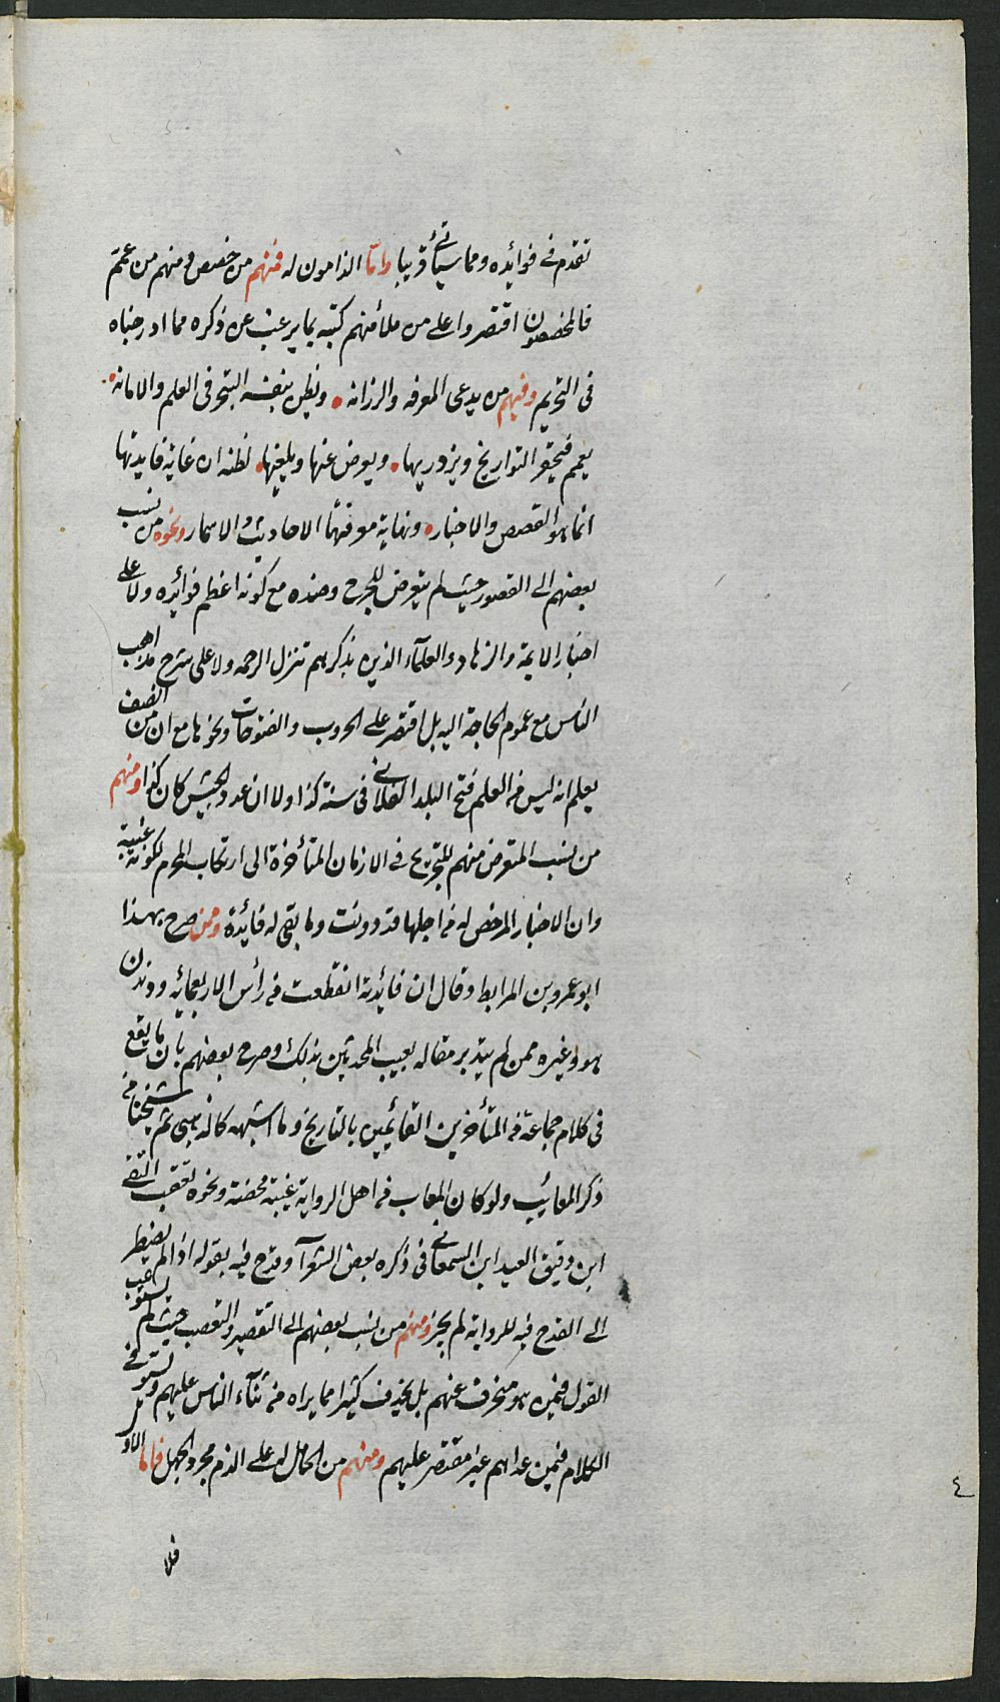 تقدم فى فوائده ومما سيأتى قريبا واما الذامون له فمنهم من خصص ومنهم من عمم
فالمخصصون اقتصروا على من ملأ منهم كتبه بما يرغب عن ذكره مما ادرجناه
فى التحريم وفيهم من يدعى المعرفه والرزانه ويظن بنفسه التبحر فى العلم والامانه
يعمم فيحتقر التواريخ ويزدريها ويعرض عنها ويلغيها لظنه ان غاية فايدتها
انما هو القصص والاخبار ونهاية معرفتها الاحاديث والاسمار ونحوه من نسب
بعضهم الى القصور حيث لم يتعرض للجرح وضده مع كونه اعظم فوائده ولا على
اخبار الايمة والزهاد والعلمآء الذين بذكرهم تنزل الرحمه ولا على شرح مذاهب
الناس مع عموم الحاجة اليه بل اقتصر على الحروب والفتوحات ونحوها مع ان من انصف
يعلم انه ليس من العلم فتح البلد الفلانى فى سنة كذا ولا ان عدد الجيش كان كذا ومنهم
من نسب المتعرض منهم للتجريح فى الازمان المتأخرة الى ارتكاب المحرم لكونه غيبة
وان الاخبار المرخص له من اجلها قد دونت وما بقى له فائدة وممن صرح بهذا
ابو عمرو بن المرابط وقال ان فائدته انقطعت من رأس الاربعمائه ودندن
هو وغيره ممن لم يتدبر مقاله بعيب المحدثين بذلك وصرح بعضهم بان ما يقع
فى كلام جماعة من المتأخرين القائمين بالتاريخ وما اشبهه كالذهبى ثم شيخنا من
ذكر المعائب ولو كان المعاب من اهل الرواية غيبة محضة ونحوه تعقب التقى
ابن دقيق العيد ابن السمعانى فى ذكره بعض الشعرآ وقدح فيه بقوله اذا لم يضطر
الى القدح فيه للرواية لم يجز ومنهم من نسب بعضهم الى التقصير والتعصب حيث لم يستوعب
القول فيمن هو منحرف عنهم بل يحذف كثيرا مما يراه من ثنآء الناس عليهم ويستوفى
الكلام فيمن عداهم غير مقتصر عليهم ومنهم من الحامل له على الذم مجرد الجهل فاما الاول
فلا
٤